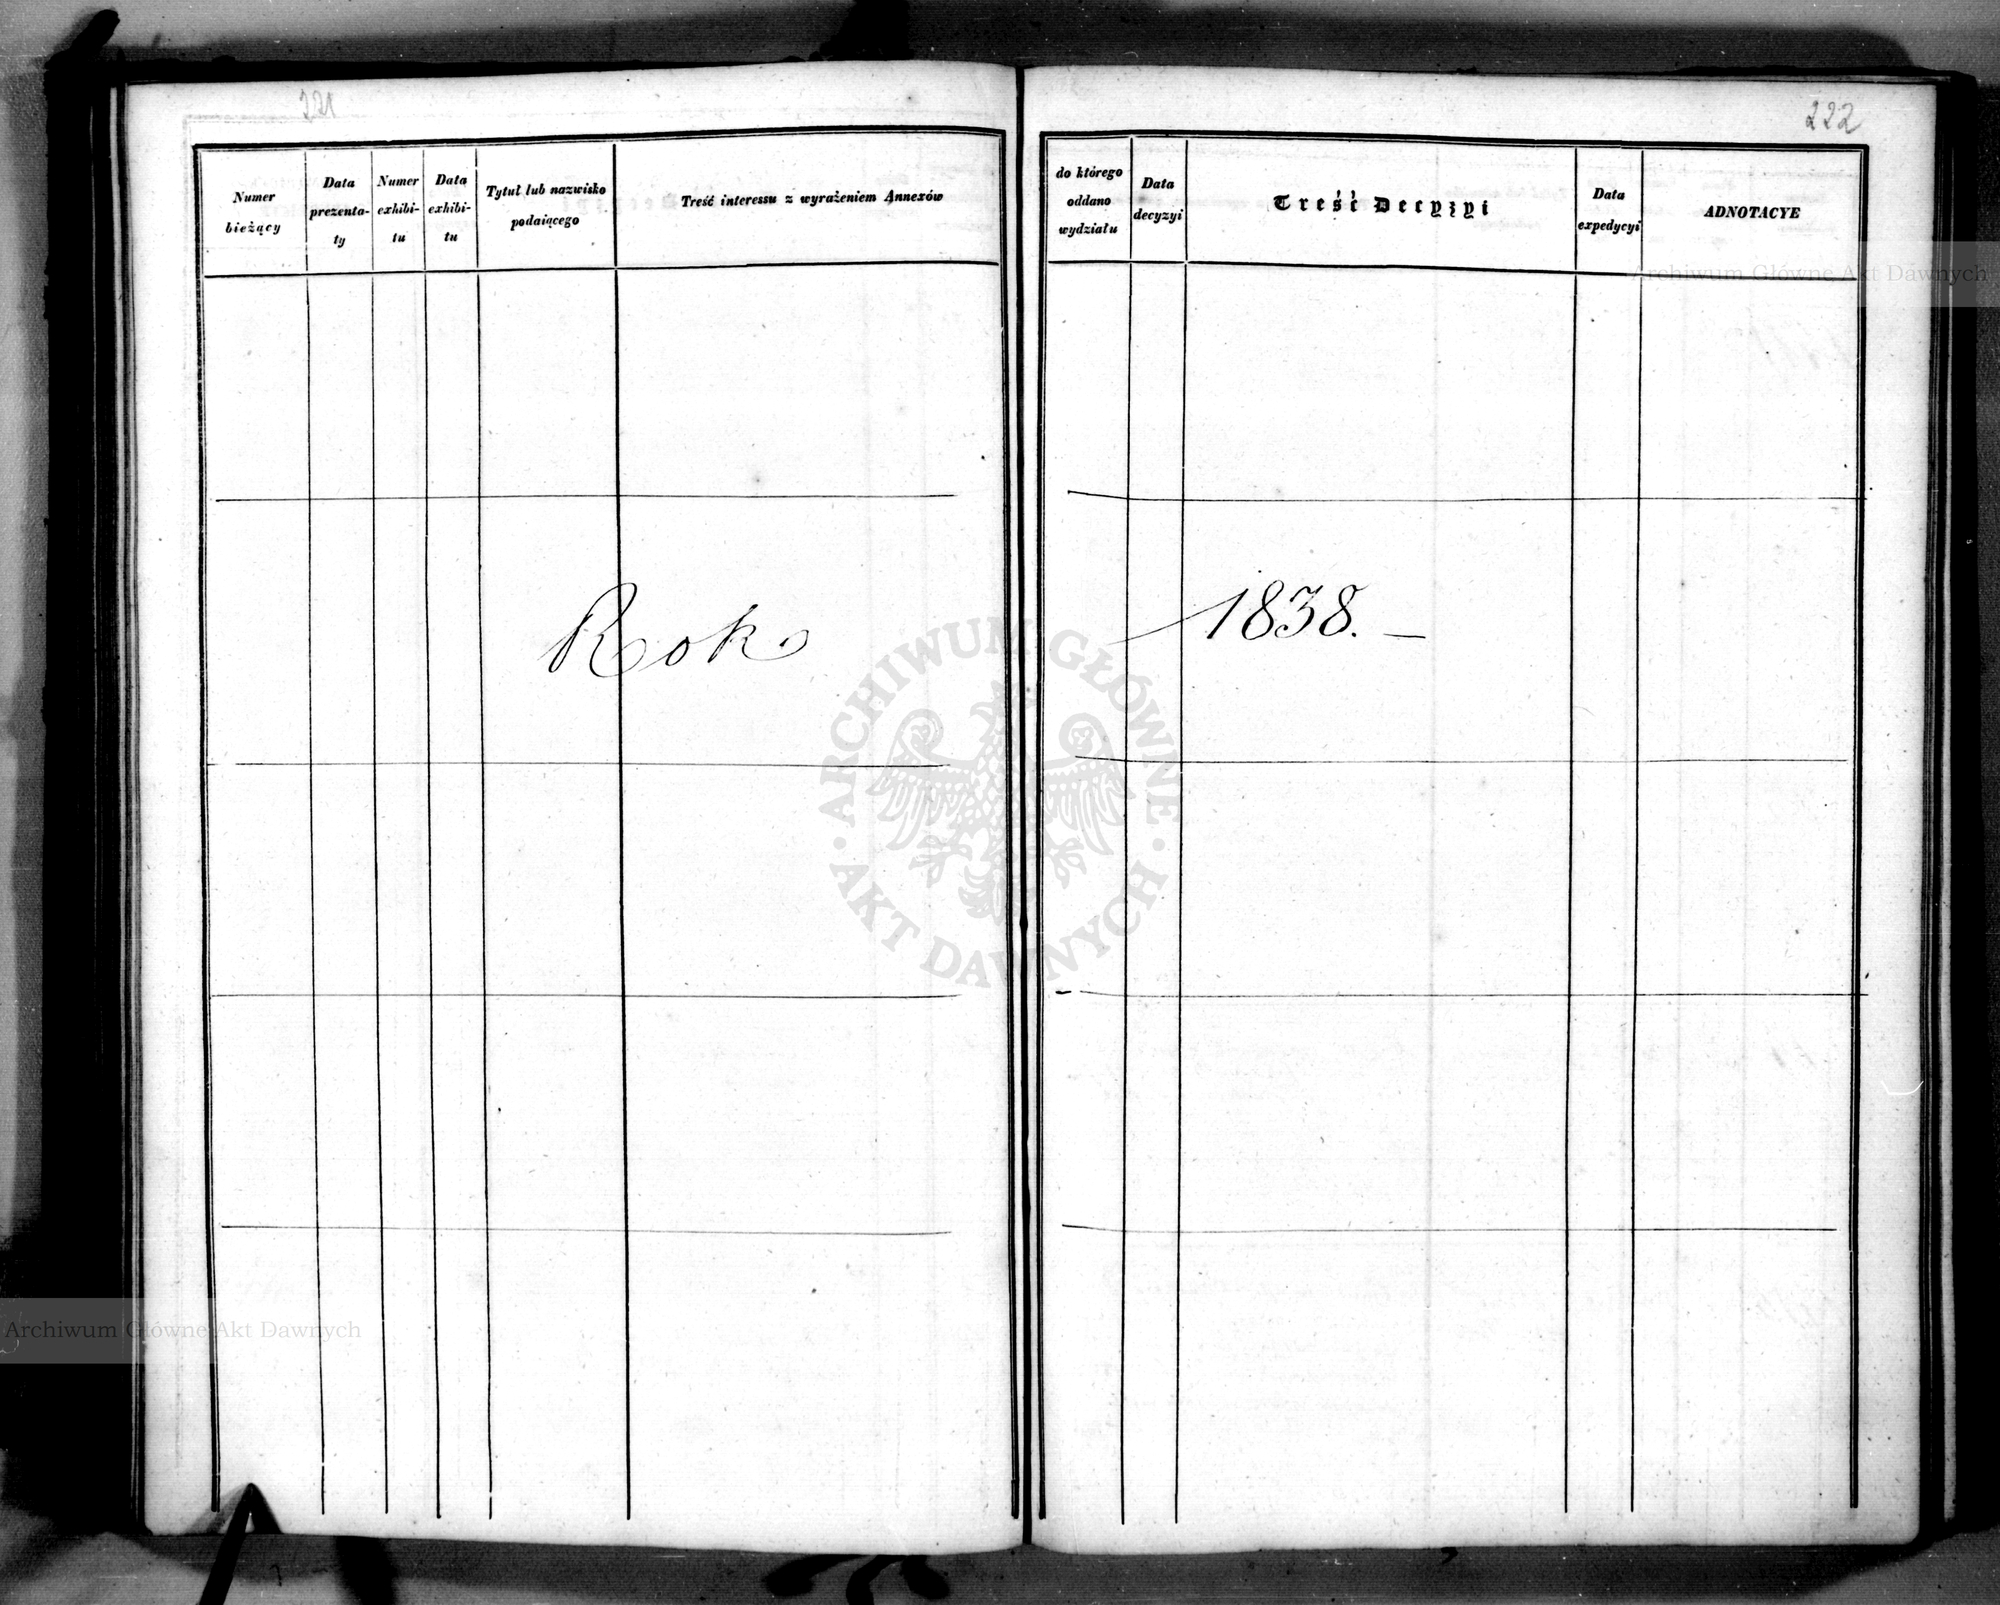 221
Numer
bieżący
Data
prezenta-
ty
Numer
exhibi-
tu
Data
exhibi-
tu
Tytuł lub nazwisko
podaiącego
Treść interessu z wyrażeniem Annexów
Rok
222
do którego
oddano
wydziału
Data
decyzyi
Treść Decyzyi
Data
expedycyi
ADNOTACYE
1838. —
Archiwum Główne Akt Dawnych
ARCHIWUM GŁÓWNE
AKT DAWNYCH
Archiwum Główne Akt Dawnych